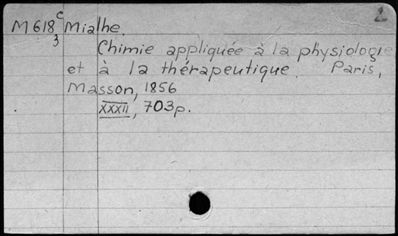 2
M618 c Mialhe.
3
Chimie appliquée à la physiologie
et à la thérapeutique. Paris,
Masson, 1856
XXXII, 703p.